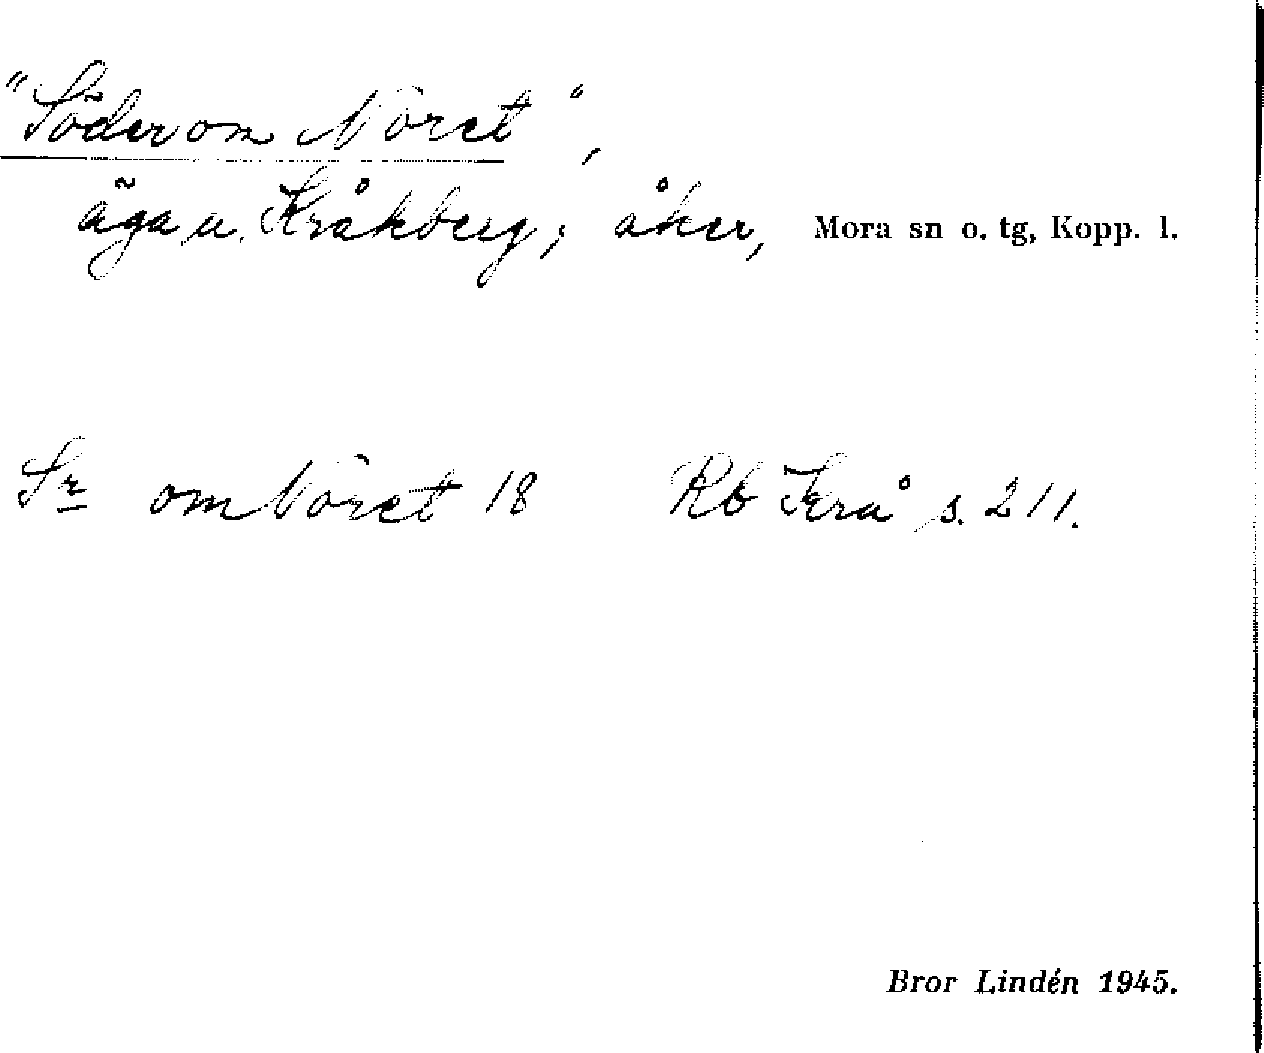 "Söder om Nöret",
äga u. Kråkberg; åker, Mora sn o. tg, Kopp. l.
Sr om Nöret 18 Rb Krå s. 211.
Bror Lindén 1945.